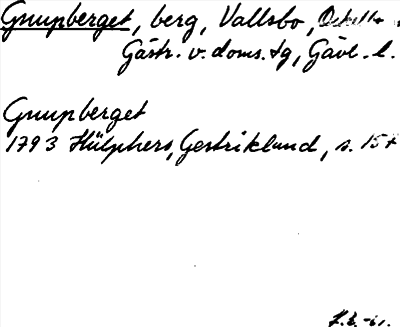 Gnupberget, berg, Vallsbo, Ockelbo
Gästr. v. doms. tg, Gävl. l.
Gnupberget
1793 Hülphers, Gestrikland, s. 157